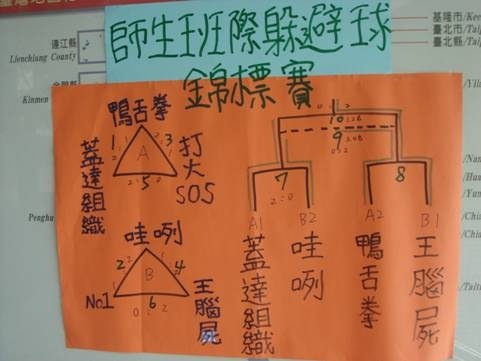 師生班際躲避球
錦標賽
連江縣
Lienchiang County
Kinmen
基隆市/Kee
臺北市/Taip
臺北縣/Taip
鴨舌拳
蓋達組織
打火SOS
1
3
A
5
哇咧
No1
王腦屍
2
4
B
6
10
9
7
2:0
8
A1
B2
A2
B1
蓋達組織
哇咧
鴨舌拳
王腦屍